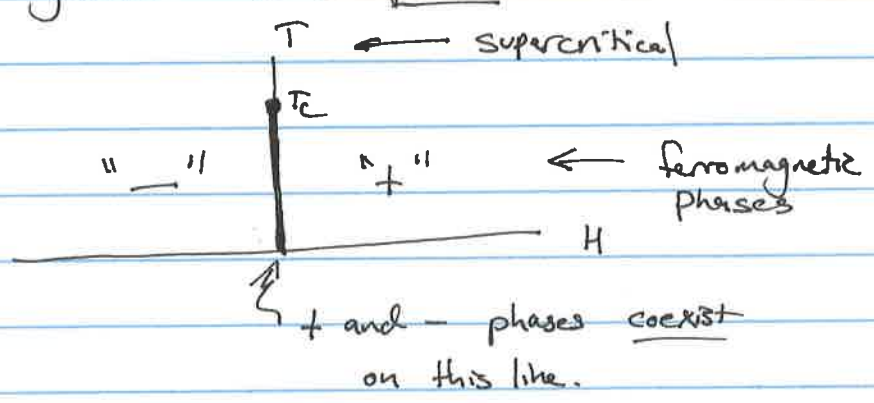 T ← supercritical
Tc
"−" "+" ← ferromagnetic
phases
H
+ and − phases coexist
on this line.